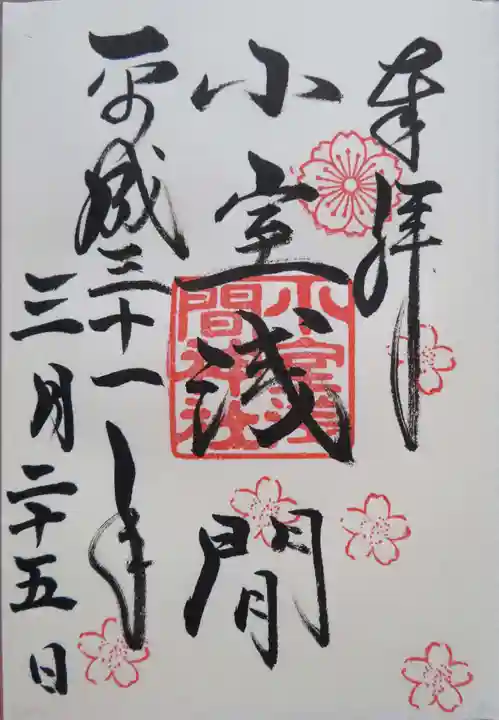 奉拝
小室浅間
小室浅間神社
平成三十一年
三月二十五日